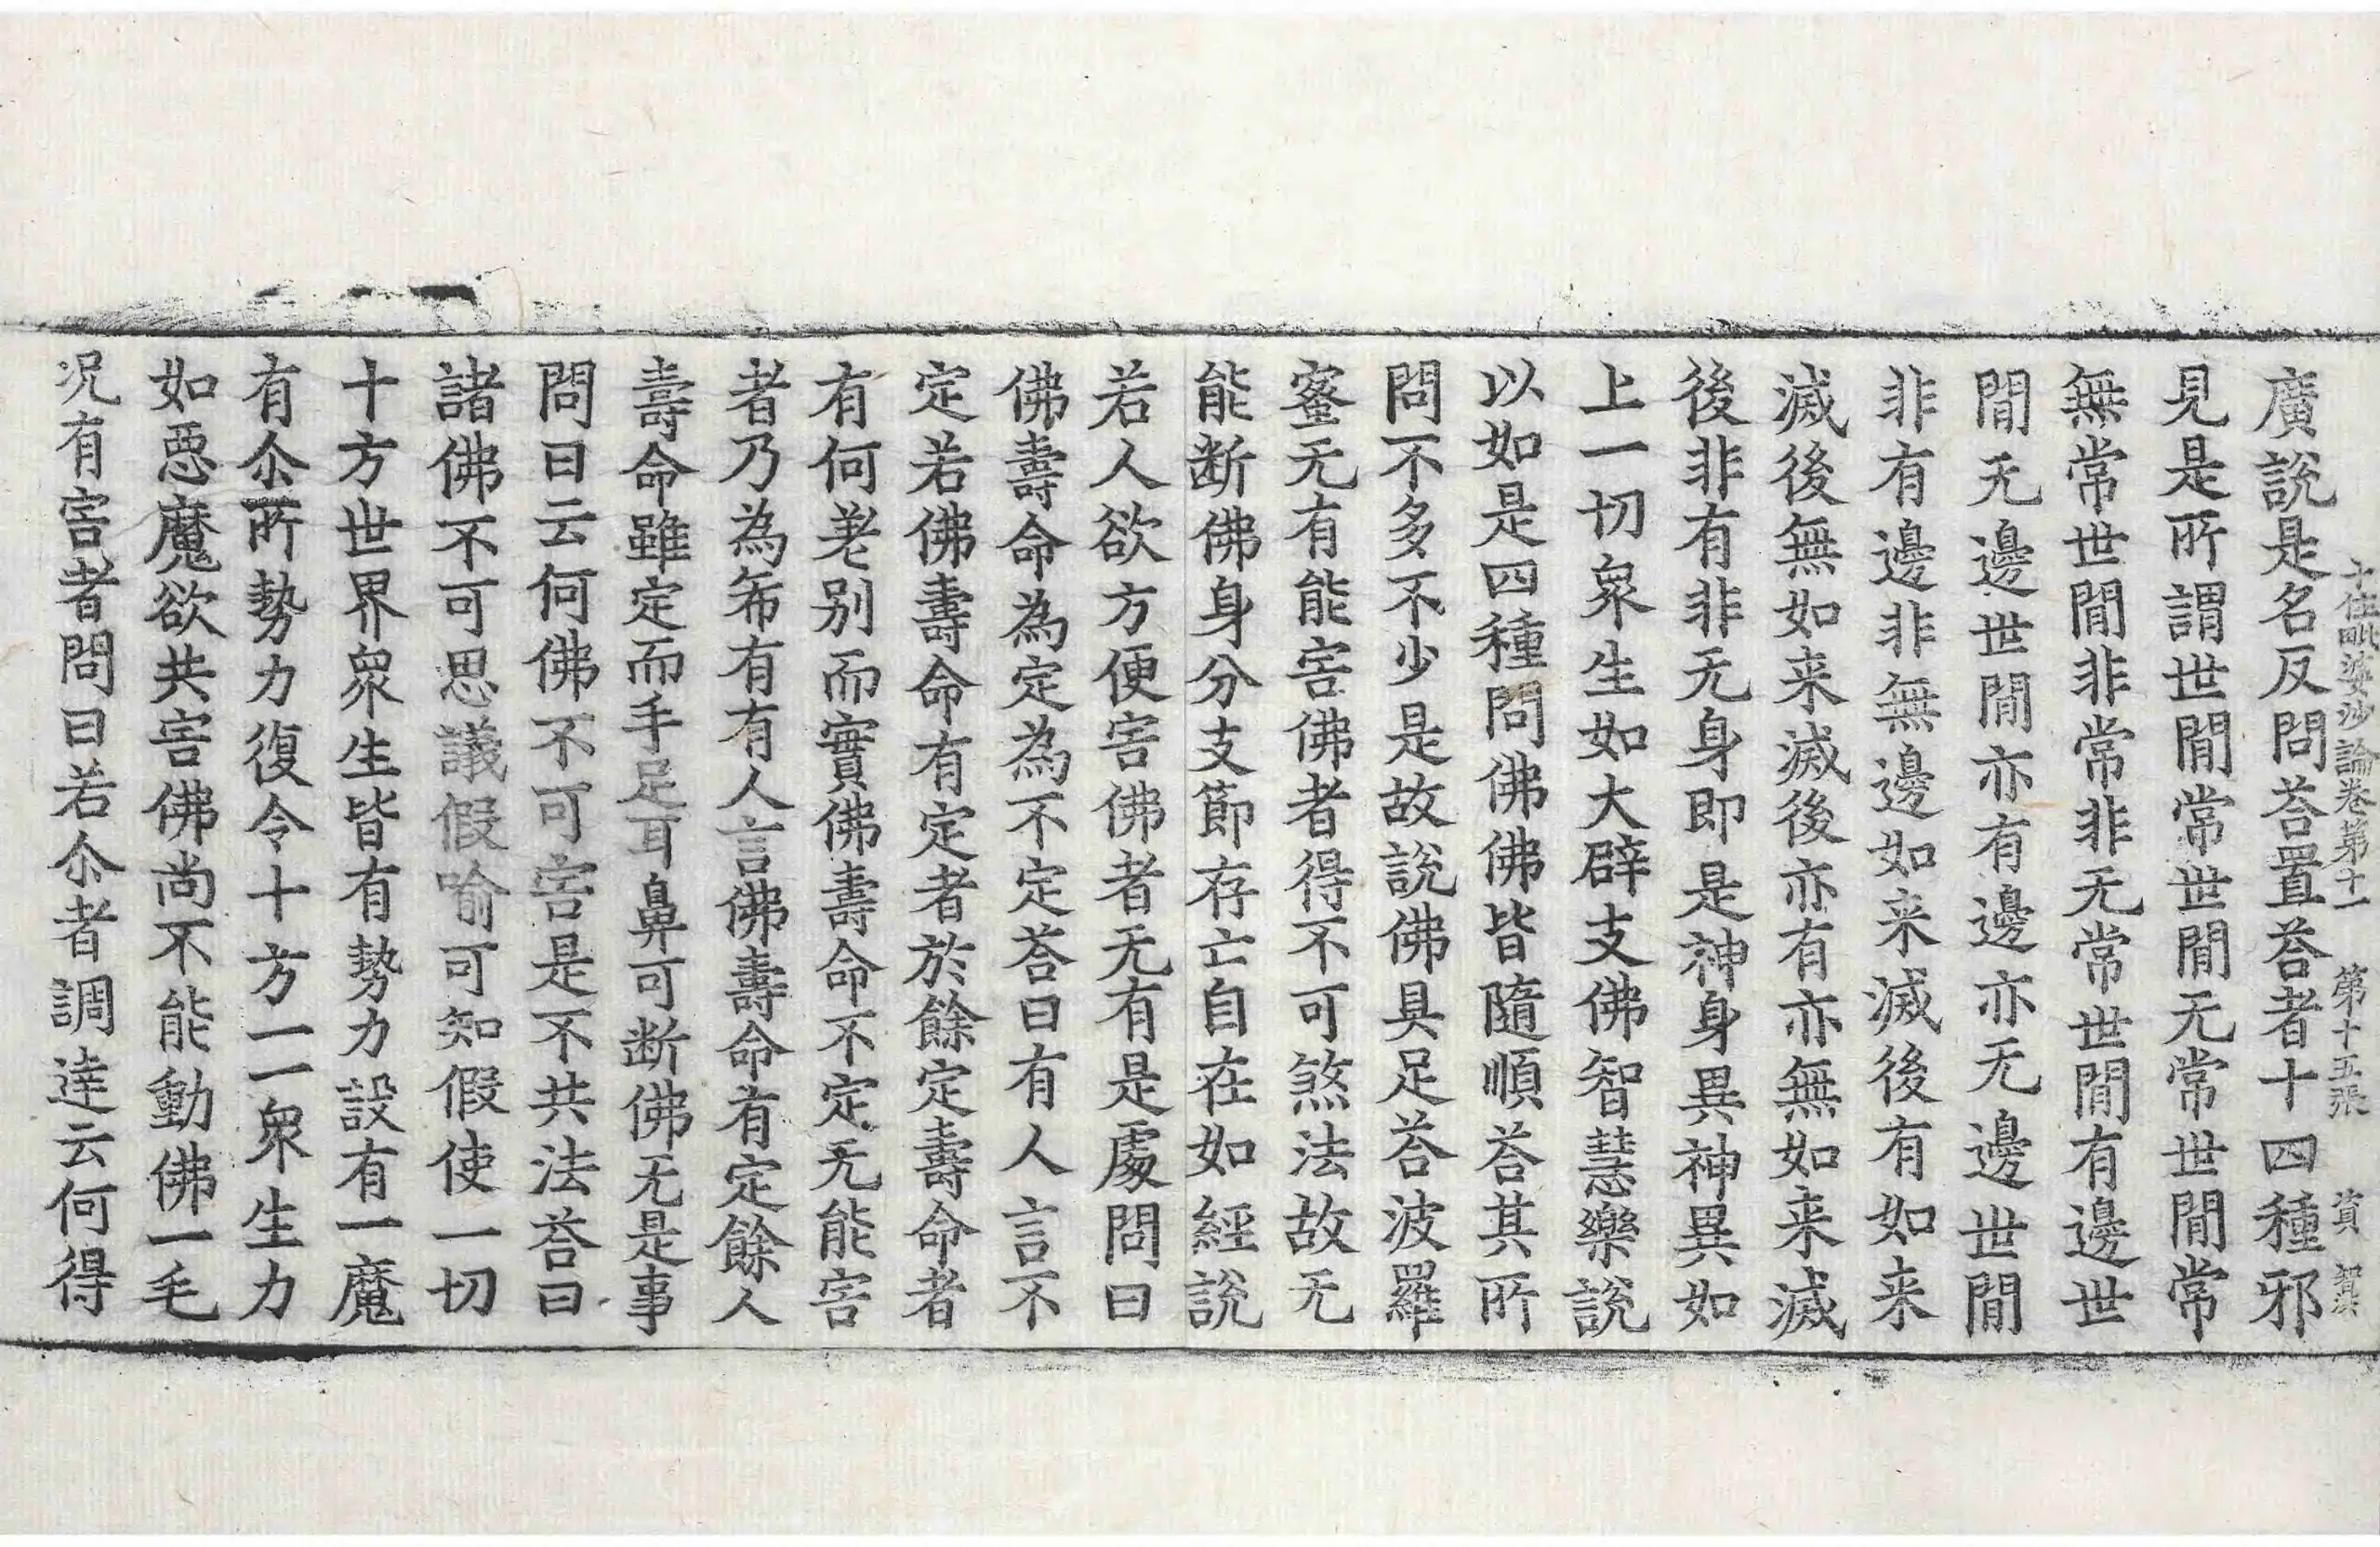 十住毗婆沙論卷第十一　第十五張　賓
廣說是名反問荅置荅者十四種邪
見是所謂世閒常世閒无常世閒常
無常世閒非常非无常世閒有邊世
閒无邊世閒亦有邊亦无邊世閒
非有邊非無邊如来滅後有如来
滅後無如来滅後亦有亦無如来滅
後非有非无身即是神身異神異如
上一切衆生如大辟支佛智慧樂說
以如是四種問佛佛皆隨順荅其所
問不多不少是故說佛具足荅波羅
蜜无有能害佛者得不可煞法故无
能断佛身分支節存亡自在如經說
若人欲方便害佛者无有是處問曰
佛壽命為定為不定荅曰有人言不
定若佛壽命有定者於餘定壽命者
有何差別而實佛壽命不定无能害
者乃為希有有人言佛壽命有定餘人
壽命雖定而手足耳鼻可断佛无是事
問曰云何佛不可害是不共法荅曰
諸佛不可思議假喻可知假使一切
十方世界衆生皆有勢力設有一魔
有尒所勢力復令十方一一衆生力
如惡魔欲共害佛尚不能動佛一毛
况有害者問曰若尒者調達云何得